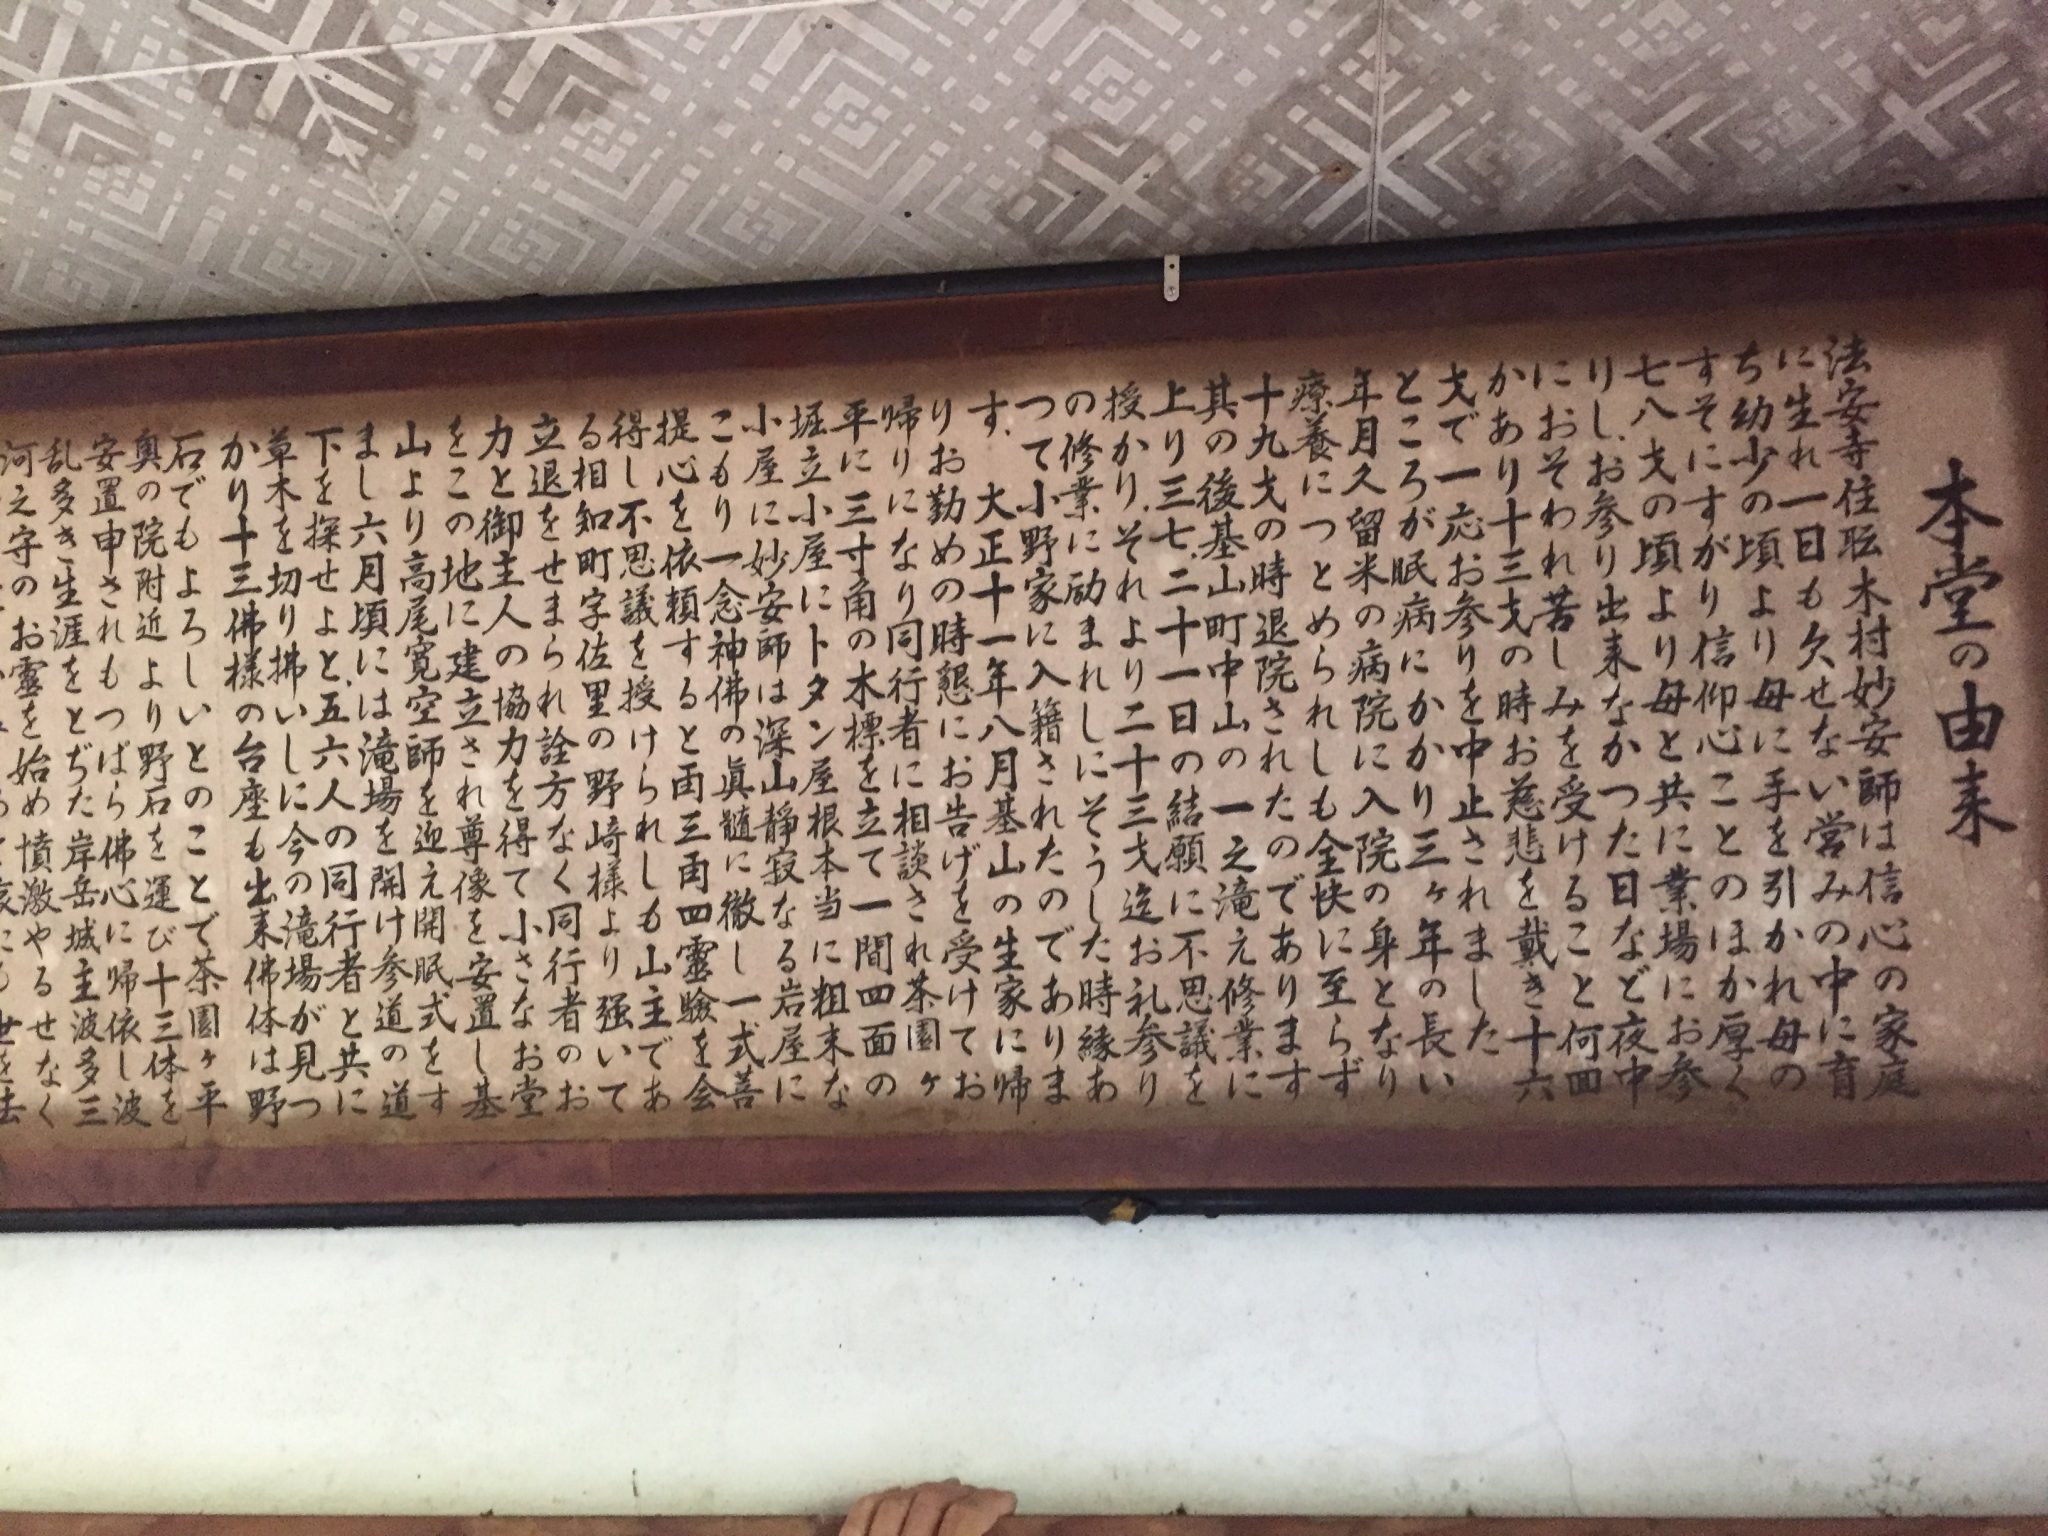 本堂の由来
法安寺住職木村妙安師は信心の家庭
に生れ一日も欠せない営みの中に育
ち幼少の頃より母に手を引かれ母の
すそにすがり信仰心ことのほか厚く
七八才の頃より母と共に業場にお参
りし、お参り出来なかつた日など夜中
におそわれ苦しみを受けること何回
かあり十三才の時お慈悲を戴き十六
才で一応お参りを中止されました
ところが眠病にかかり三ヶ年の長い
年月久留米の病院に入院の身となり
療養につとめられしも全快に至らず
十九才の時退院されたのであります
其の後基山町中山の一之滝え修業に
上り三七、二十一日の結願に不思議を
授かり、それより二十三才迄お礼参り
の修業に励まれしにそうした時縁あ
つて小野家に入籍されたのでありま
す、大正十一年八月基山の生家に帰
りお勤めの時懇にお告げを受けてお
帰りになり同行者に相談され茶園ヶ
平に三寸角の木標を立て一間四面の
堀立小屋にトタン屋根本当に粗末な
小屋に妙安師は深山静寂なる岩屋に
こもり一念神佛の眞髄に徹し一式菩
提心を依頼すると再三再四靈驗を会
得し不思議を授けられしも山主であ
る相知町字佐里の野崎様より强いて
立退をせまられ詮方なく同行者のお
力と御主人の協力を得て小さなお堂
をこの地に建立され尊像を安置し基
山より高尾寛空師を迎え開眠式をす
まし六月頃には滝場を開け参道の道
下を探せよと、五六人の同行者と共に
草木を切り拂いしに今の滝場が見つ
かり十三佛様の台座も出来佛体は野
石でもよろしいとのことで茶園ヶ平
奥の院附近より野石を運び十三体を
安置申されもつぱら佛心に帰依し波
乱多き生涯をとぢた岸岳城主波多三
河之守のお靈を始め憤激やるせなく